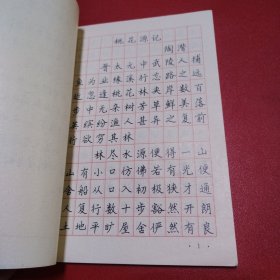 桃花源记
陶潜
晋太元中武陵人捕
鱼为业缘溪行忘路之远
近忽逢桃花林夹岸数百
步中无杂树芳草鲜美落
英缤纷渔人甚异之复前
行欲穷其林
林尽水源便得一山
山有小口仿佛若有光便
舍船从口入初极狭才通
人复行数十步豁然开朗
土地平旷屋舍俨然有良
·1·